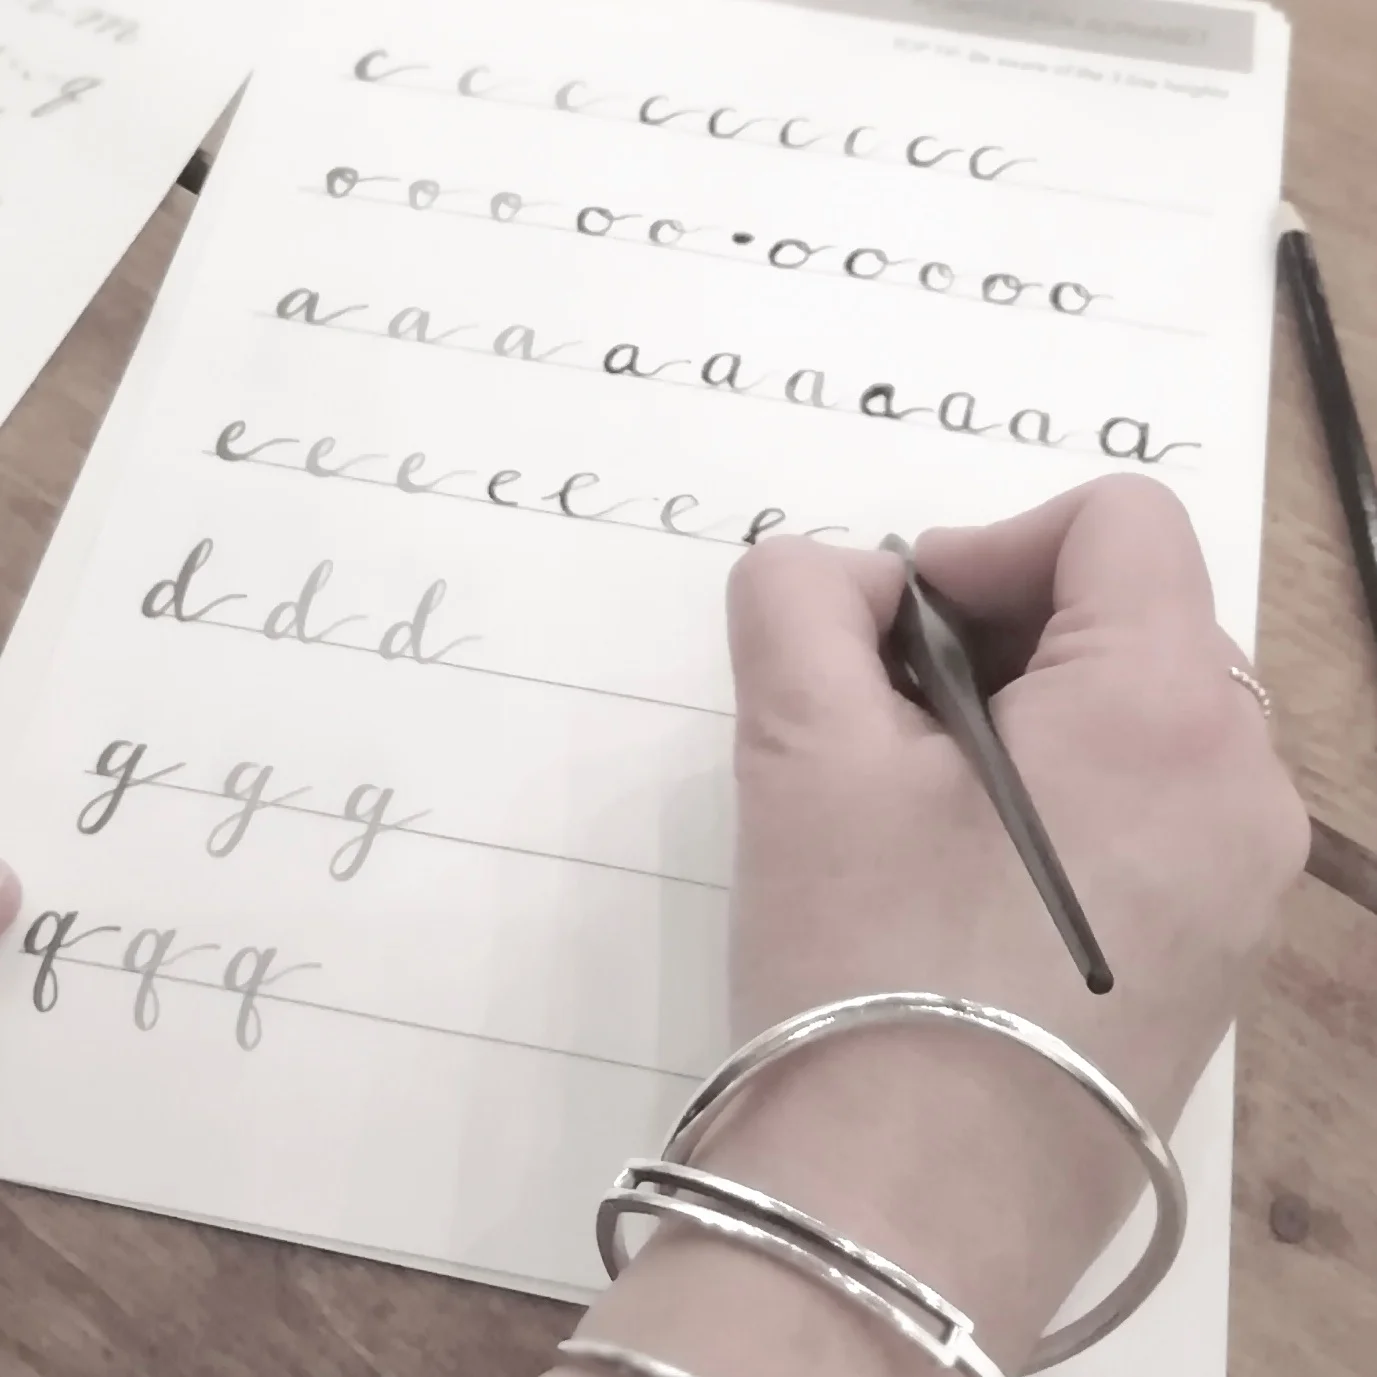 ALPHABET
TOP TIP: Be aware of the line heights
c c c c c c c c c
o o o o o • o o o o o
a a a a a a a a a a
e e e e e e e
d d d
g g g
q q q